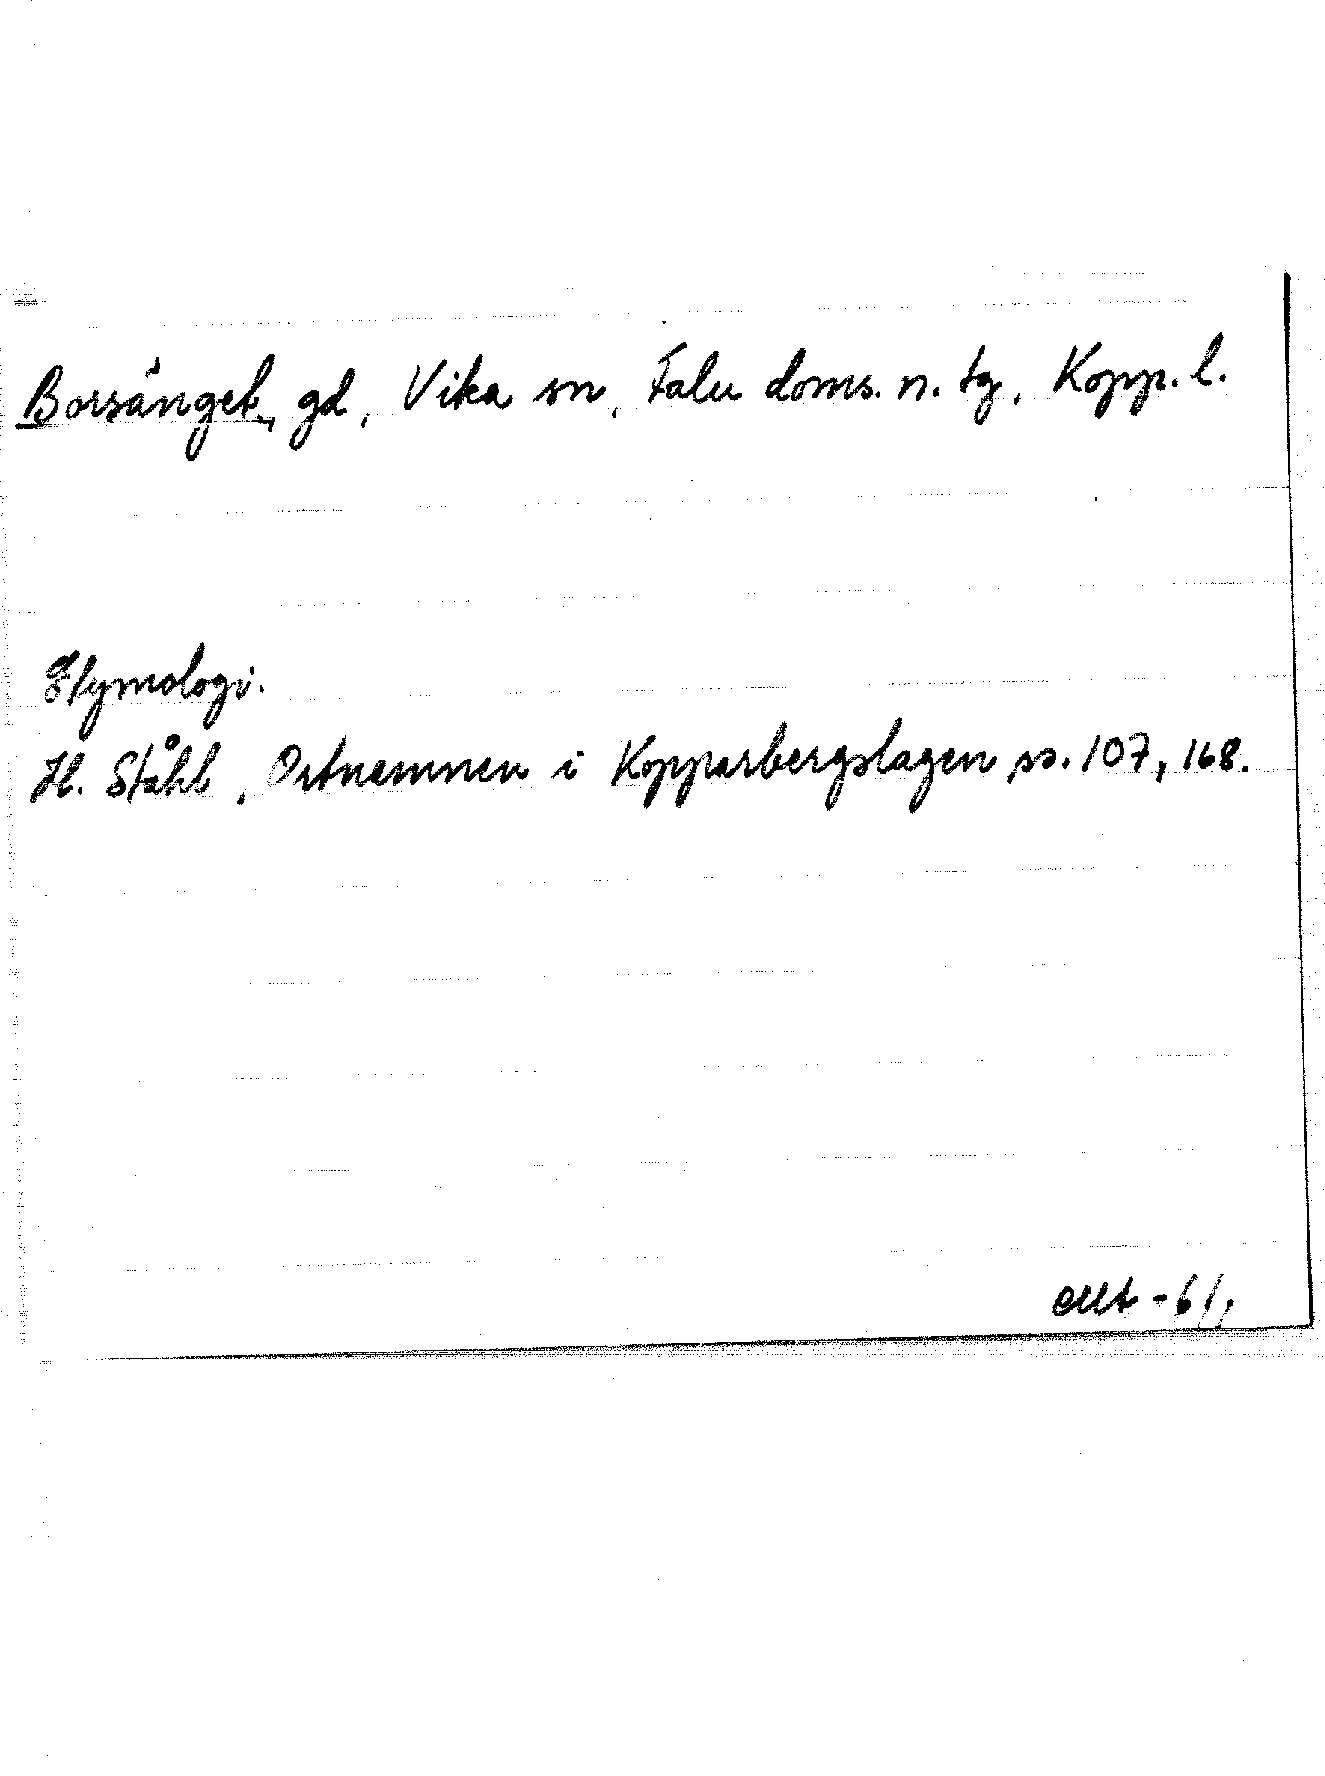 Borsänget, gd, Vika sn, Falu doms. n. tg, Kopp. l.
Etymologi.
H. Ståhl, Ortnamnen i Kopparbergslagen ss. 107, 168.
-61,